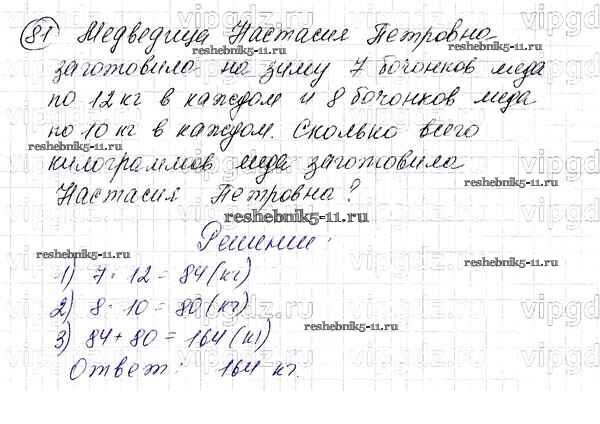 81 Медведица Настасия Петровна
заготовила на зиму 7 бочонков меда
по 12 кг в каждом и 8 бочонков меда
по 10 кг в каждом. Сколько всего
килограммов меда заготовила
Настасия Петровна?
Решение:
1) 7 · 12 = 84 (кг)
2) 8 · 10 = 80 (кг)
3) 84 + 80 = 164 (кг)
Ответ: 164 кг.
reshebnik5-11.ru
reshebnik5-11.ru
reshebnik5-11.ru
reshebnik5-11.ru
reshebnik5-11.ru
reshebnik5-11.ru
reshebnik5-11.ru
reshebnik5-11.ru
vipgdz